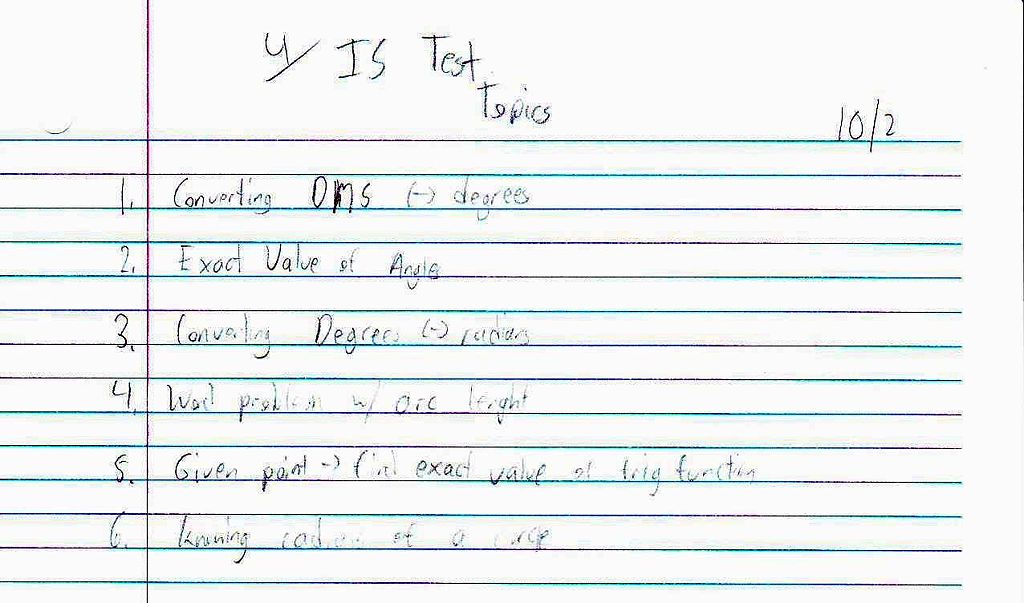 4/ IS Test
Topics
10/2
1. Converting DMS (-) degrees
2. Exact Value of Angle
3. Converting Degrees (-) radians
4. Word problem w/ arc lenght
5. Given point -> find exact value of trig function
6. Knowing radius of a